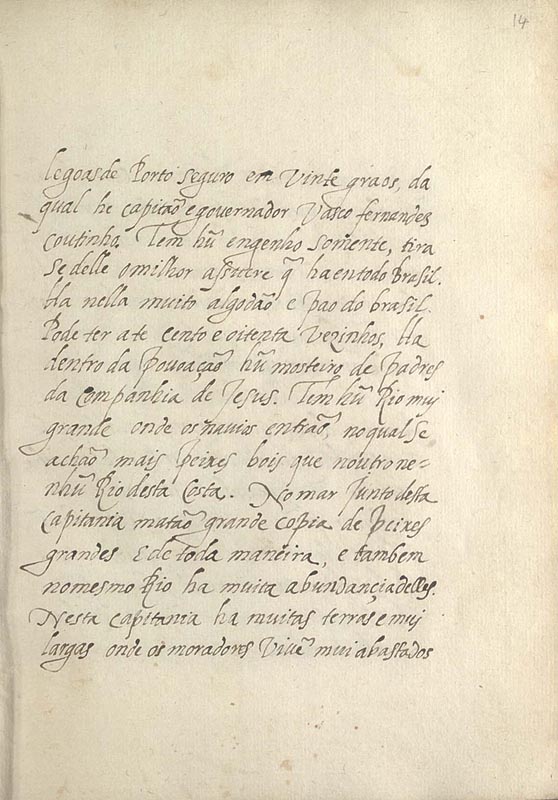 14
legoas de Porto seguro em vinte graos, da
qual he capitaõ e governador Vasco fernandez
coutinho. Tem hũ engenho somente, tira
se delle o milhor assucere q̃ ha en todo Brasil.
Ha nella muito algodaõ e pao do brasil.
Pode ter ate cento e oitenta vezinhos, Ha
dentro da povoaçaõ hũ mosteiro de padres
da Companhia de Jesus. Tem hũ Rio muj
grande onde os navios entraõ, no qual se
achaõ mais peixes bois que noutro ne=
nhũ Rio desta Costa. No mar Junto desta
Capitania mataõ grande copia de peixes
grandes E de toda maneira, e tambem
no mesmo Rio ha muita abundançia delles.
Nesta capitania ha muitas terras e muj
largas onde os moradores vivẽ mui abastados